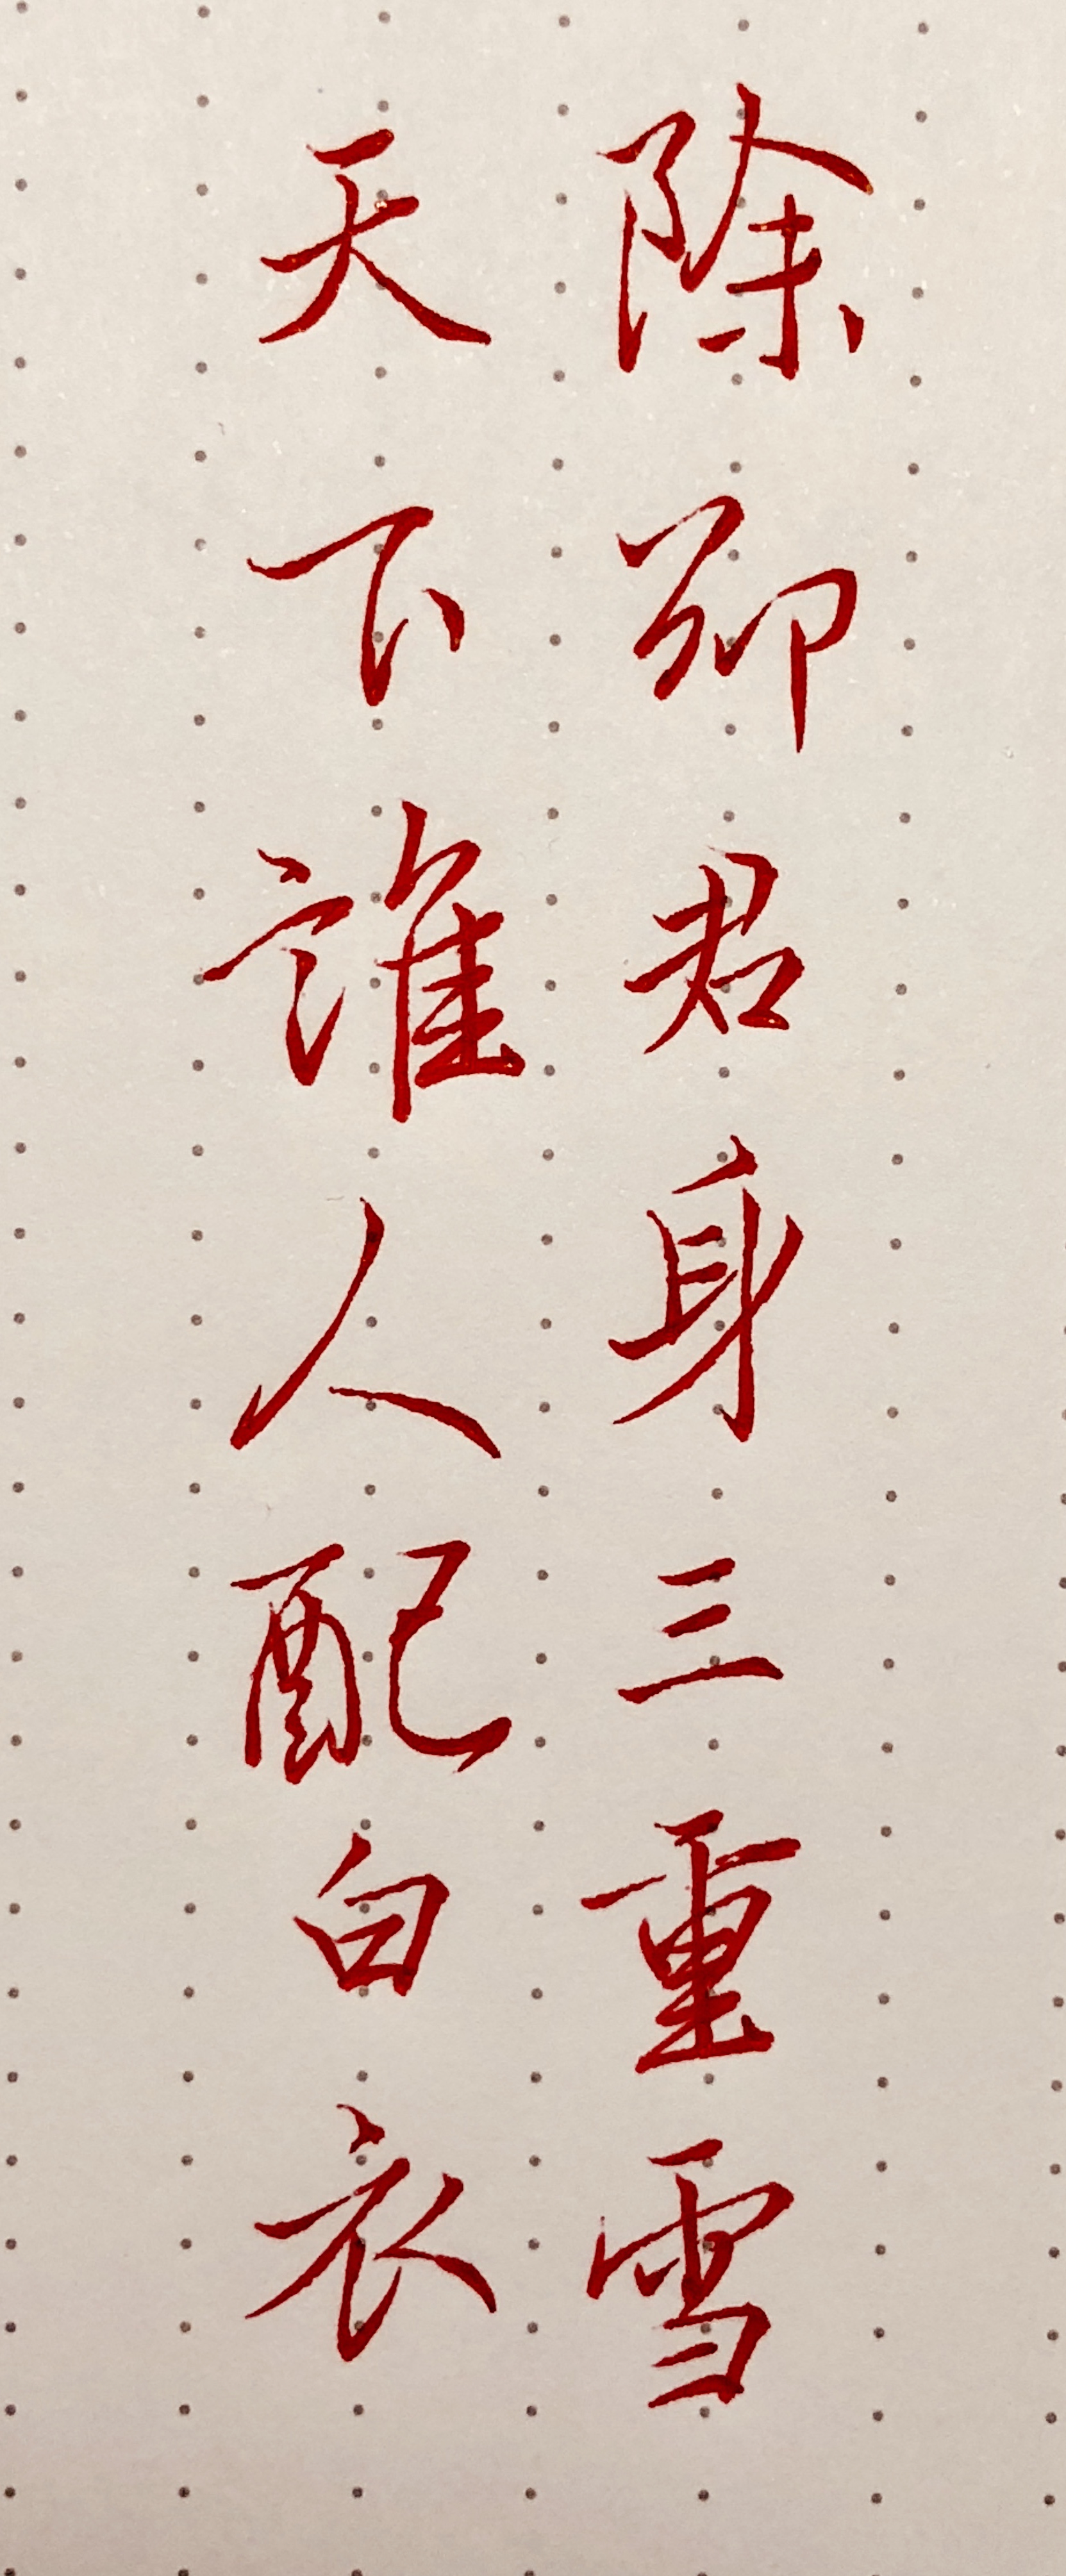 除卻君身三重雪
天下誰人配白衣